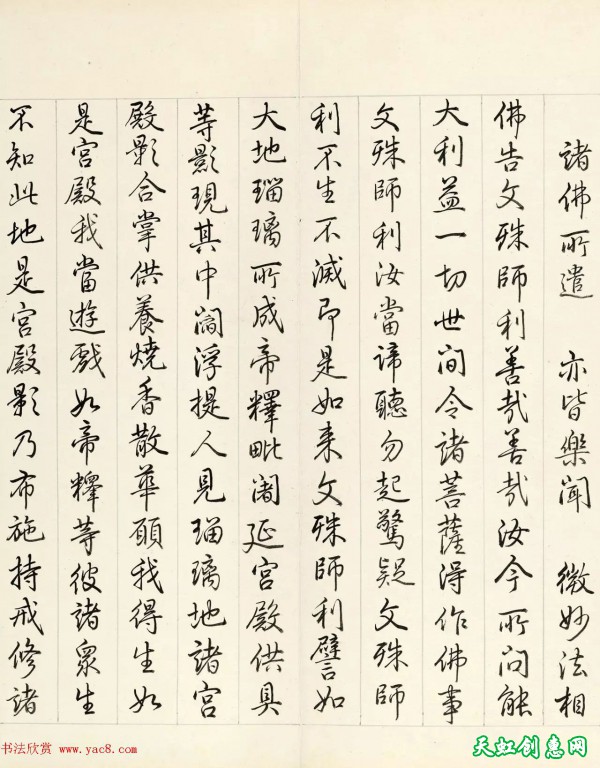 諸佛所遣 亦皆樂聞 微妙法相
佛告文殊師利善哉善哉汝今所問能
大利益一切世間令諸菩薩得作佛事
文殊師利汝當諦聽勿起驚疑文殊師
利不生不滅即是如来文殊師利譬如
大地瑠璃所成帝釋毗闍延宮殿供具
等影現其中閻浮提人見瑠璃地諸宮
殿影合掌供養燒香散華願我得生如
是宮殿我當遊戲如帝釋等彼諸衆生
不知此地是宮殿影乃布施持戒修諸
书法欣赏 www.yac8.com
天虹创意网